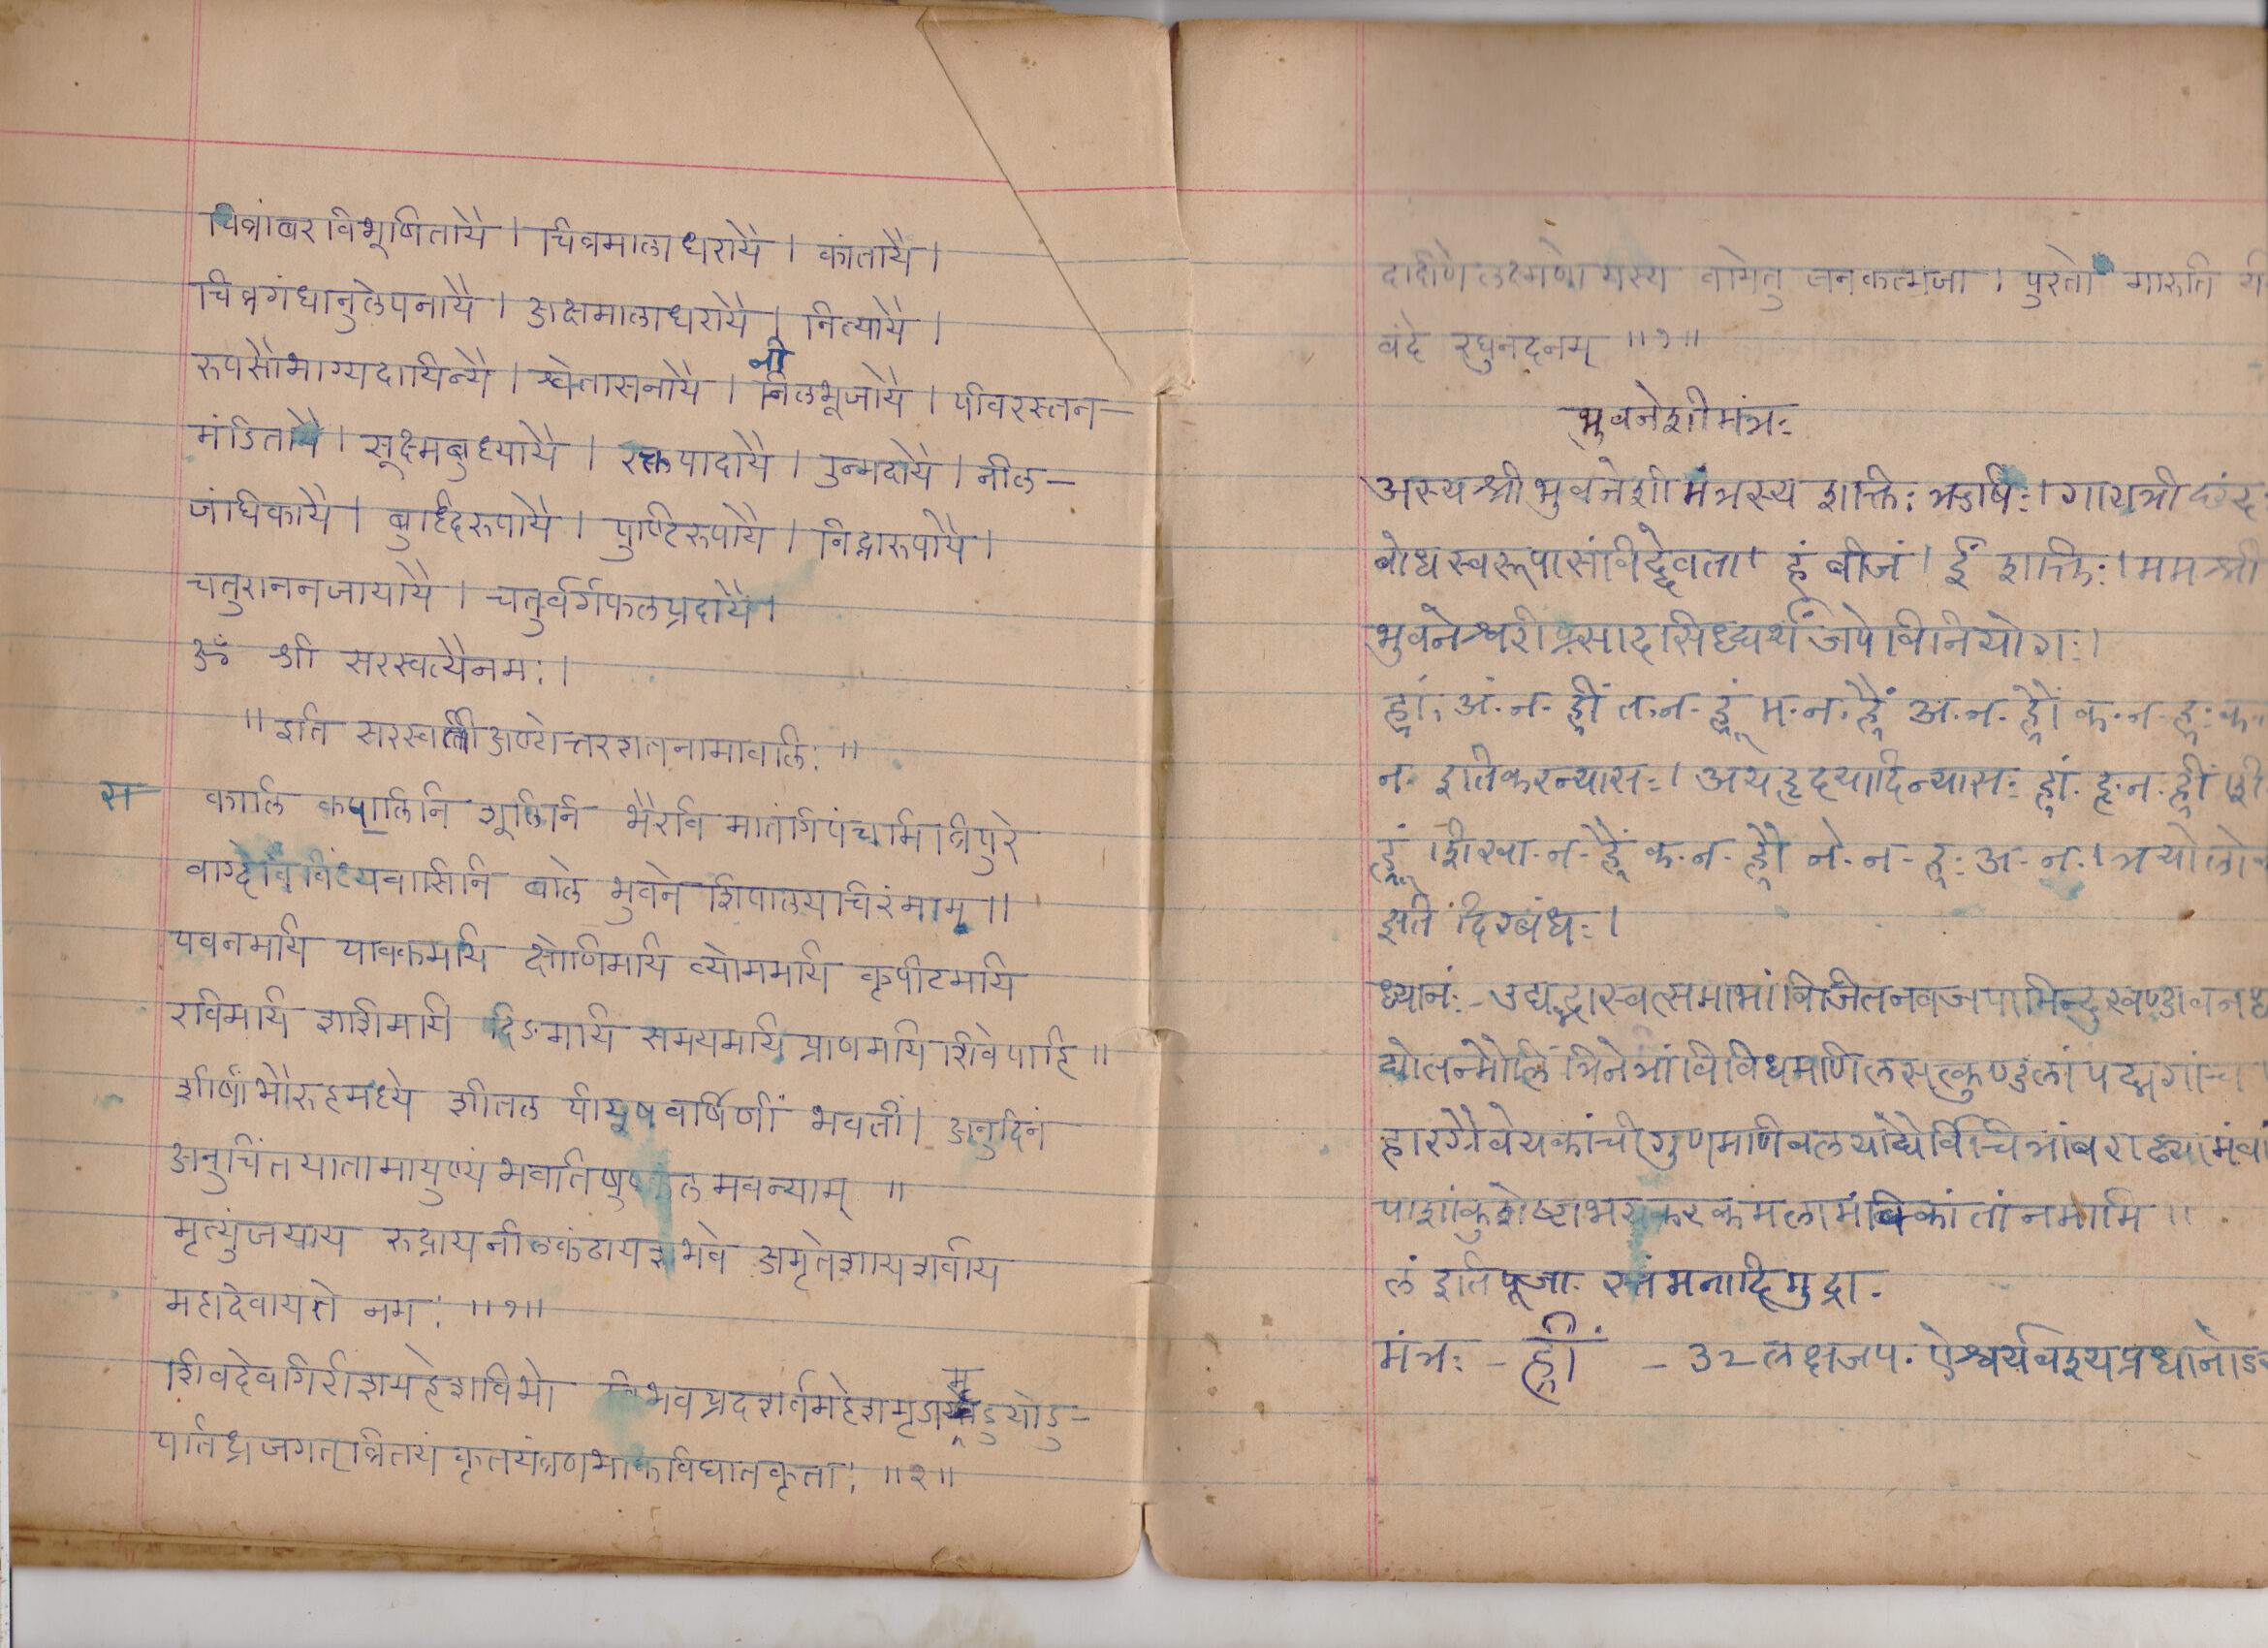 चित्रांबरविभूषितायै । चित्रमालाधरायै । कांतायै ।
चित्रगंधानुलेपनायै । अक्षमालाधरायै । नित्यायै ।
रुपसौभाग्यदायिन्यै । श्वेतासनायै । निलभूजायै । पीवरस्तन-
नी
मंडितायै । सूक्ष्मबुध्यायै । रक्तपादायै । उन्मदायै । नील-
जंघिकायै । बुद्धिरुपायै । पुष्टिरुपायै । निद्रारुपायै ।
चतुराननजायायै । चतुर्वर्गफलप्रदायै ।
ॐ श्री सरस्वत्यैनमः ।
॥ इति सरस्वती अष्टोत्तरशतनामावलिः ॥
स कालि कपालिनि शूलिनि भैरवि मातंगि पंचमि त्रिपुरे
वाग्देवि विंध्यवासिनि बाले भुवनेशि पालय चिरं माम् ॥
पवनमयि पावकमयि क्षोणिमयि व्योममयि कृपीटमयि
रविमयि शशिमयि दिङमयि समयमयि प्राणमयि शिवे पाहि ॥
शीर्षांभोरुहमध्ये शीतल पीयूषवर्षिणीं भवतीं । अनुदिनं
अनुचिंतयातामायुष्यं भवति पुष्कलमवन्याम् ॥
मृत्युंजयाय रुद्रायनीलकंठायशंभवे अमृतेशायशर्वाय
महादेवायते नमः ॥१॥
शिवदेवगिरीशमहेशविभो विभवप्रद
॥२॥
दक्षिणे लक्ष्मणो यस्य वामेतु जनकत्मजा । पुरतो मारुति
वंदे रघुनंदनम् ॥१॥
भुवनेशीमंत्रः
अस्यश्रीभुवनेशीमंत्रस्य शक्तिः ऋषिः । गायत्री छंद
बोधस्वरूपासंविद्देवता । हं बीजं । ईं शक्तिः । ममश्री
भुवनेश्वरीप्रसादसिध्द्यर्थं जपेविनियोगः ।
ह्रां. अं. न. ह्रीं त.न. ह्रूं म. न. ह्रैं अ. न. ह्रौं क. न. ह्रः क
न. इतिकरन्यासः । अथहृदयादिन्यासः ह्रां. हृ. न. ह्रीं शि
ह्रूं शिखा. न. ह्रैं क. न. ह्रौं ने. न. ह्रः अ. न. ।
इति दिग्बंधः ।
ध्यानं:- उद्यद्भास्वत्समाभांविजितनवजपामिन्दुखण्डावनध
द्योतन्मौलिं त्रिनेत्रांविविधमणिलसत्कुण्डलांपद्मगांच
हारग्रैवेयकांचीगुणमणिवलयाद्यैर्विचित्रांबराढ्यामंबां
पाशांकुशेष्टाभयकरकमलामंबिकां तां नमामि ॥
लं इतिपूजा. स्तंभनादिमुद्रा.
मंत्रः - ह्रीं - ३२ लक्षजप. ऐश्वर्यवश्यप्रधानोऽ